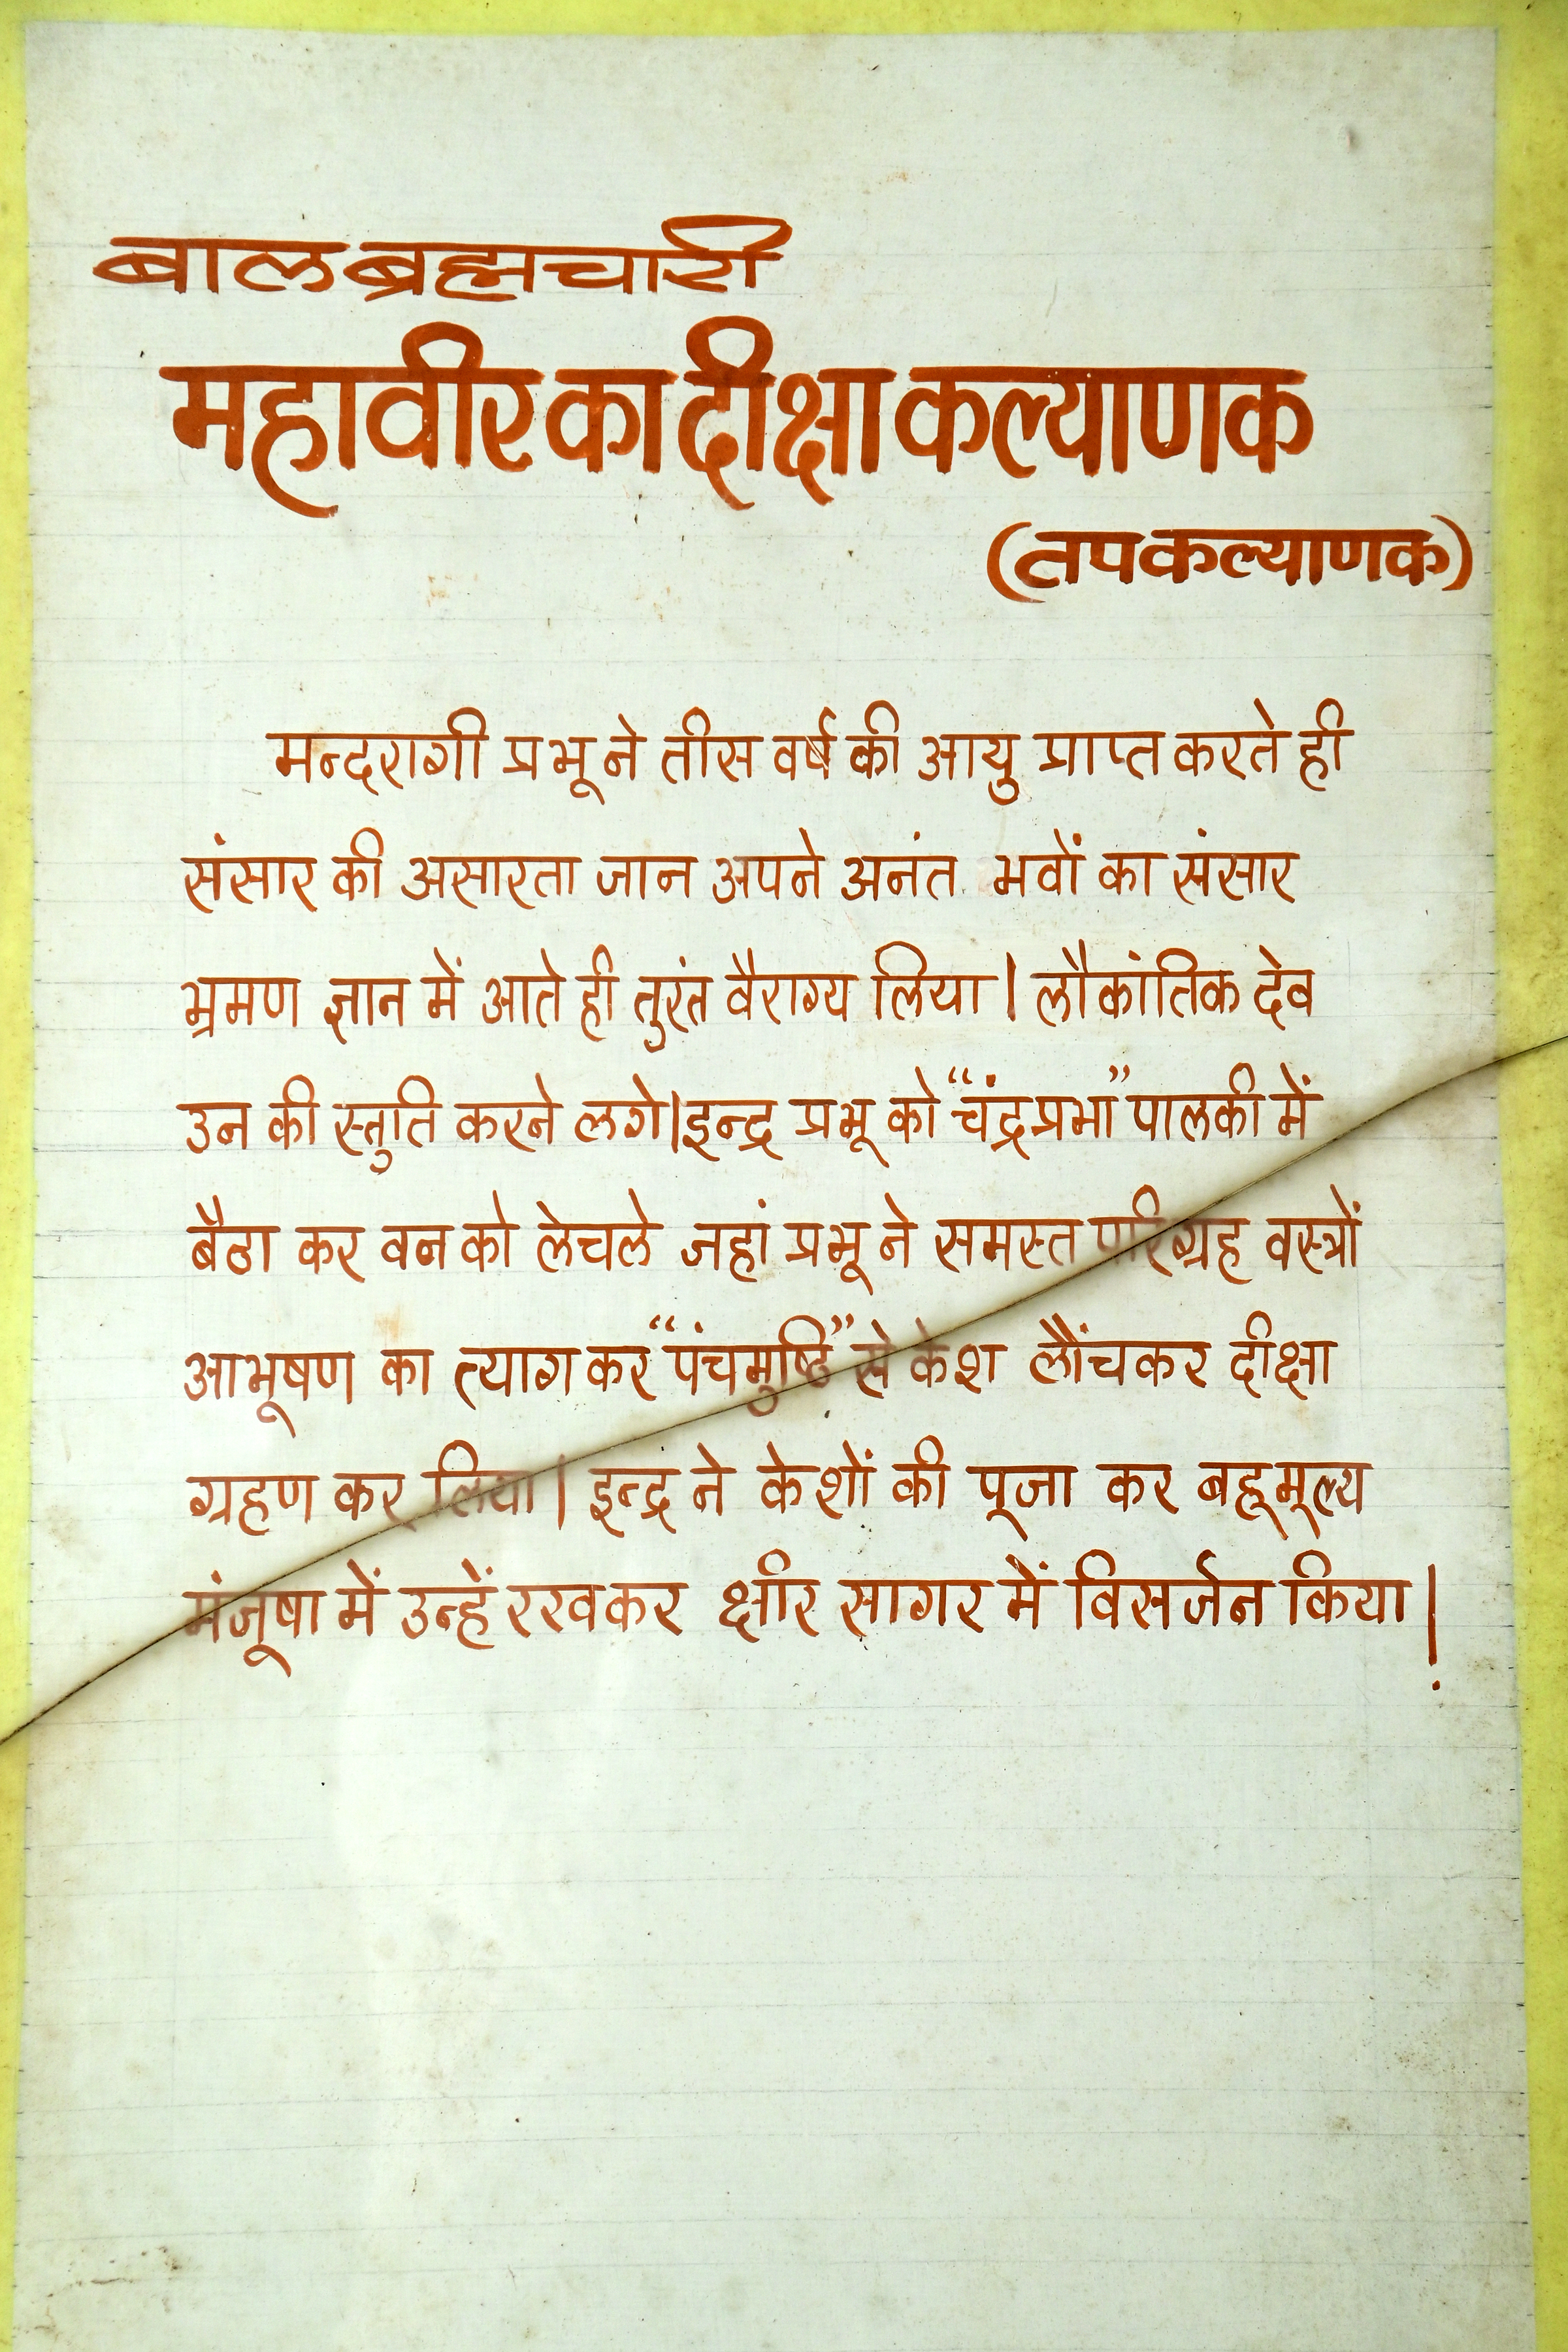 बाल ब्रह्मचारी
महावीर का दीक्षा कल्याणक
(तप कल्याणक)
मन्दरागी प्रभू ने तीस वर्ष की आयु प्राप्त करते ही
संसार की असारता जान अपने अनंत भवों का संसार
भ्रमण ज्ञान में आते ही तुरंत वैराग्य लिया। लौकांतिक देव
उन की स्तुति करने लगे। इन्द्र प्रभू को “चंद्रप्रभा” पालकी में
बैठा कर वन को लेचले जहां प्रभू ने समस्त परिग्रह वस्त्रों
आभूषण का त्याग कर “पंचमुष्ठि” से केश लौंचकर दीक्षा
ग्रहण कर लिया। इन्द्र ने केशों की पूजा कर बहूमूल्य
मंजूषा में उन्हें रखकर क्षीर सागर में विसर्जन किया।